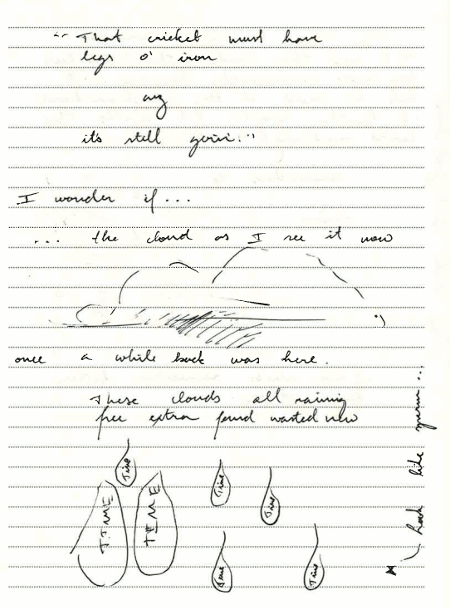 " That cricket must have
legs o' iron
it's still goin'."
I wonder if...
... the cloud as I see it now
once a while back was here.
These clouds all raining
free extra found wasted new
Time
TIME
TIME
Time
Time
Time
Time
look like